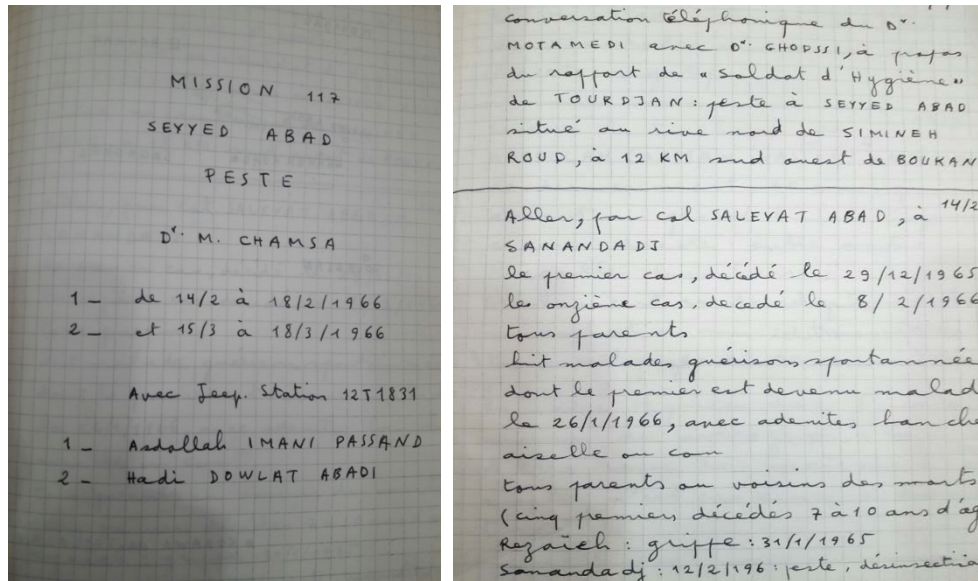 MISSION 117
SEYYED ABAD
PESTE
Dr. M. CHAMSA
1 - de 14/2 à 18/2/1966
2 - et 15/3 à 18/3/1966
Avec Jeep. Station 12T1831
1 - Asdollah IMANI PASSAND
2 - Hadi DOWLAT ABADI
conversation téléphonique du Dr.
MOTAMEDI avec Dr. GHODSSI, à propos
du rapport de "Soldat d'Hygiène"
de TOURDJAN : peste à SEYYED ABAD
situé au rive nord de SIMINEH
ROUD, à 12 KM sud ouest de BOUKAN
14/2
Aller, par col SALEVAT ABAD, à
SANANDADJ
le premier cas, décédé le 29/12/1965
les onzième cas, decedé le 8/2/1966
tous parents
huit malades guérisons spontannée
dont le premier est devenu malad
le 26/1/1966, avec adenites hanche
aiselle ou cou
tous parents ou voisins des morts
(cinq premiers décédés 7 à 10 ans d'âg
Rezaïeh : grippe : 31/1/1965
Sanandadj : 12/2/196 : peste, désinsecti